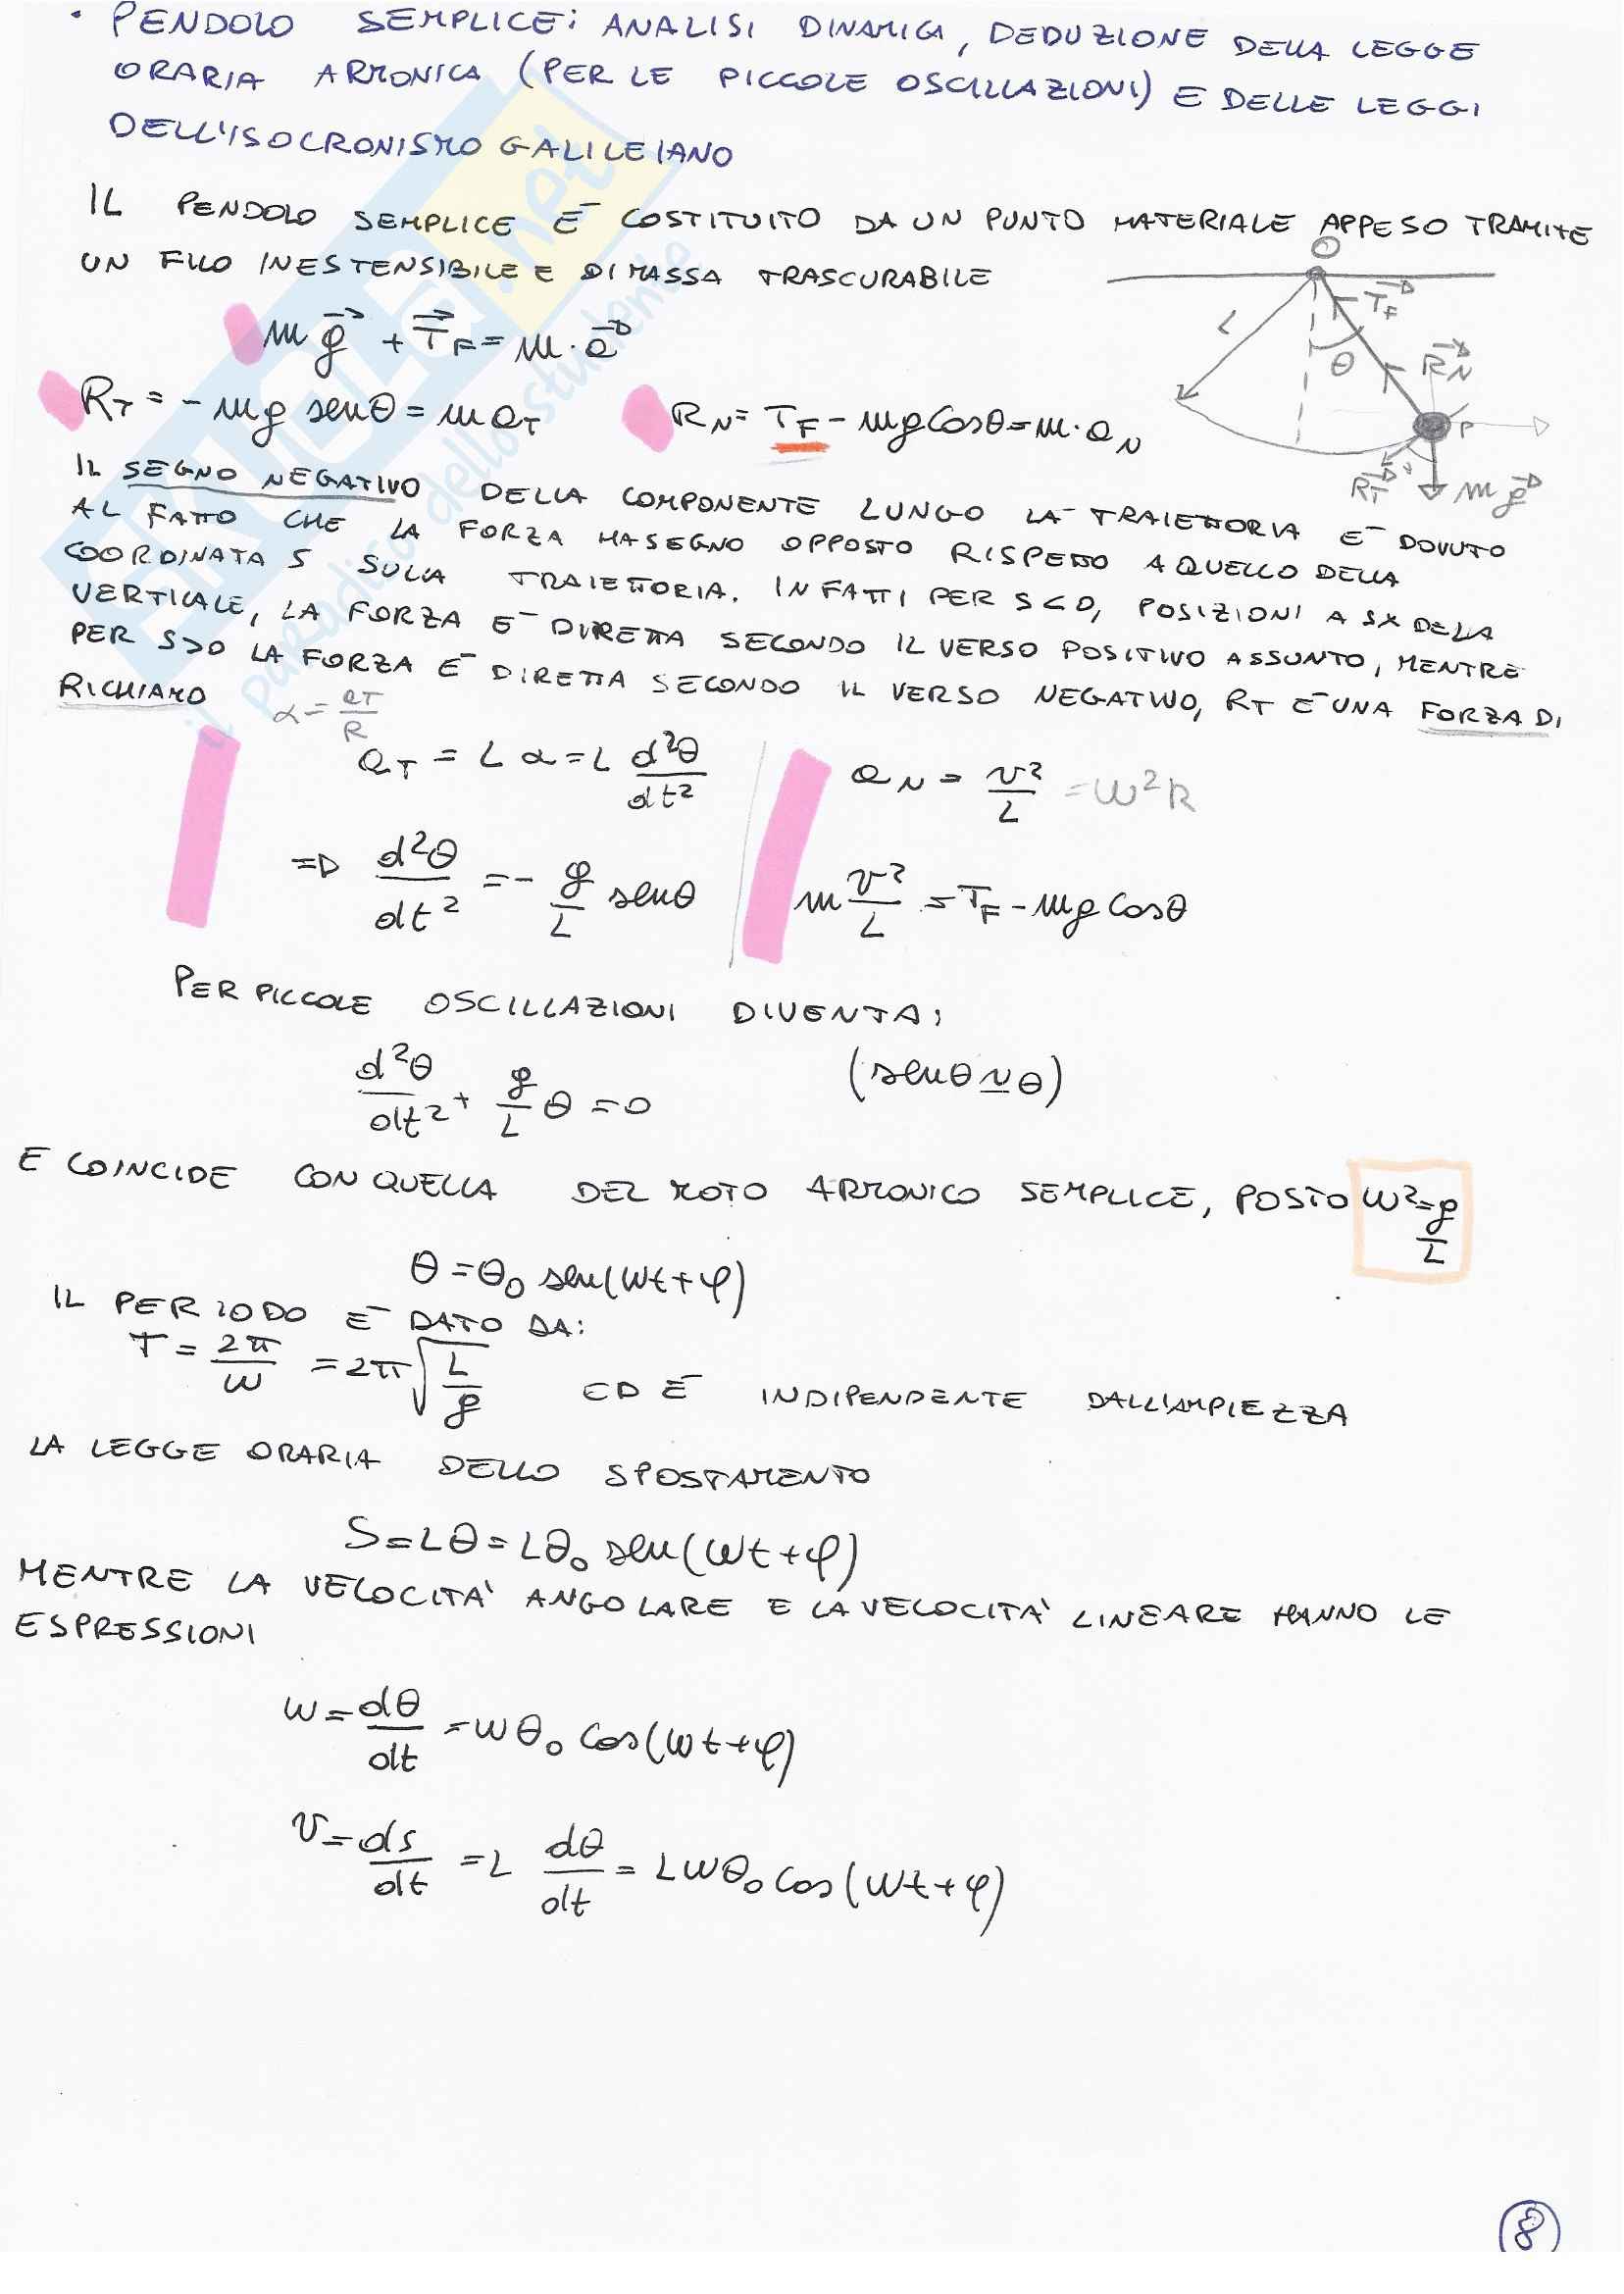 • PENDOLO SEMPLICE: ANALISI DINAMICA, DEDUZIONE DELLA LEGGE
ORARIA ARMONICA (PER LE PICCOLE OSCILLAZIONI) E DELLE LEGGI
DELL'ISOCRONISMO GALILEIANO
IL PENDOLO SEMPLICE È COSTITUITO DA UN PUNTO MATERIALE APPESO TRAMITE
UN FILO INESTENSIBILE E DI MASSA TRASCURABILE
O
L
θ
T_F
R_N
P
R_T
m g⃗
m g⃗ + T⃗_F = m · a⃗
R_T = - mg senθ = m a_T
R_N = T_F - mg cosθ = m · a_N
IL SEGNO NEGATIVO DELLA COMPONENTE LUNGO LA TRAIETTORIA È DOVUTO
AL FATTO CHE LA FORZA HA SEGNO OPPOSTO RISPETTO A QUELLO DELLA
COORDINATA S SULLA TRAIETTORIA. INFATTI PER S<0, POSIZIONI A SX DELLA
VERTICALE, LA FORZA È DIRETTA SECONDO IL VERSO POSITIVO ASSUNTO, MENTRE
PER S>0 LA FORZA È DIRETTA SECONDO IL VERSO NEGATIVO, R_T È UNA FORZA DI
RICHIAMO
α = a_T/R
a_T = L α = L d²θ/dt²
a_N = v²/L = ω²R
⇒ d²θ/dt² = - g/L senθ
m v²/L = T_F - mg cosθ
PER PICCOLE OSCILLAZIONI DIVENTA:
d²θ/dt² + g/L θ = 0
(senθ ≃ θ)
E COINCIDE CON QUELLA DEL MOTO ARMONICO SEMPLICE, POSTO ω² = g/L
θ = θ₀ sen(ωt+φ)
IL PERIODO È DATO DA:
T = 2π/ω = 2π√(L/g) ED È INDIPENDENTE DALL'AMPIEZZA
LA LEGGE ORARIA DELLO SPOSTAMENTO
S = Lθ = Lθ₀ sen(ωt+φ)
MENTRE LA VELOCITA' ANGOLARE E LA VELOCITA' LINEARE HANNO LE
ESPRESSIONI
ω = dθ/dt = ωθ₀ cos(ωt+φ)
v = ds/dt = L dθ/dt = Lωθ₀ cos(ωt+φ)
8
SKUOLA.net
il paradiso dello studente